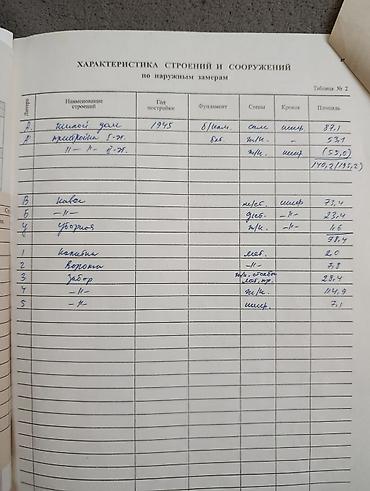 ХАРАКТЕРИСТИКА СТРОЕНИЙ И СООРУЖЕНИЙ
по наружным замерам
Таблица № 2
Литера Наименование строений Год постройки Фундамент Стены Кровля Площадь
жилой дом 1945 б/кам. сам шиф. 87,1
пристройка I-эт. бет. ж/к. - 53,1
-"- -"- II-эт. ж/к. шиф (55,0)
140,2
В навес м/ст. шиф 73,4
Б -"- -"- 23,4
У уборная ж/к. -"- 1,6
98,4
1 калитка мет. 2,0
2 ворота -"-
3 забор 28,4
4 -"- ж/к. 114,9
5 -"- шиф. 7,1